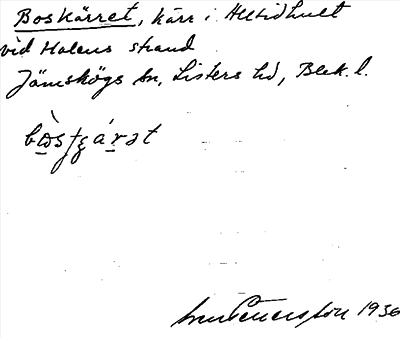 Boskärret, kärr i Alltidhult
vid Halens strand
Jämshögs sn, Listers hd, Blek. l.
1936